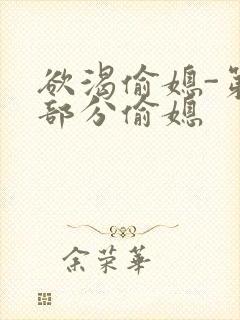 欲渴偷媳-第
部分偷媳
余荣华